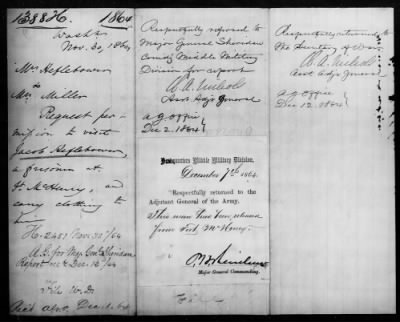 1388 H. 1864
Wash
Nov. 30, 1864
Mrs Heflebower
Mrs Miller
Request per-
mission to visit
Jacob Heflebower,
a prisoner at
Ft McHenry, and
carry clothing to
him
A. G. for Maj Gen Sheridan
Report
File W. D.
Respectfully referred to
Major General Sheridan
Comdg Middle Military
Division for report
Asst Adjt General
A. G. Office
Dec 2. 1864
Headquarters Middle Military Division,
December 7th 1864.
"Respectfully returned to the
Adjutant General of the Army.
These men have been released
from Fort McHenry.
P. H. Sheridan
Major General Commanding.
File
Respectfully returned to
the Secretary of War
Asst Adjt General
A. G. Office
Dec 12, 1864